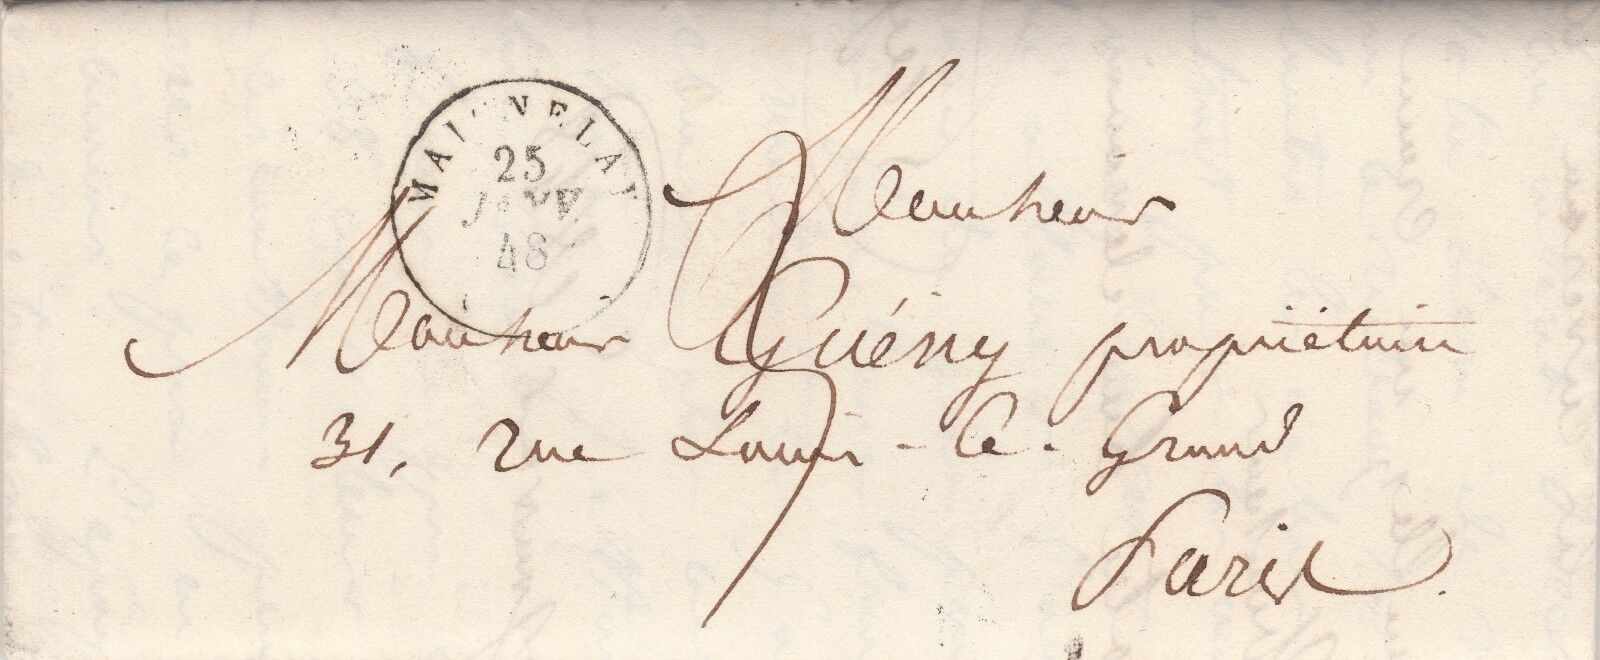 MAIGNELAY
25
JANV
48
Monsieur
Monsieur Guény propriétaire
31, rue Louis-le-Grand
Paris